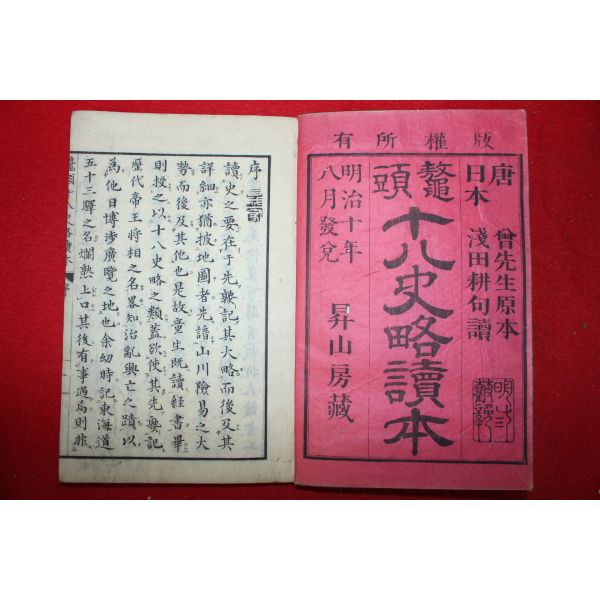 有所權版
唐 曾先生原本
日本 淺田耕句讀
鼇頭十八史略讀本
明治十年
八月發兌
昇山房藏
序
讀史之要在于先輳記其大略而後及其
詳細亦猶披地圖者先諳山川險易之大
勢而後及其他也是故童生既讀經書畢
則授之以十八史略之類蓋欲使其先輳記
歷代帝王將相之名畧知治亂興亡之蹟以
為他日博涉廣覽之地也余幼時記東海道
五十三驛之名爛熟上口其後有事過焉則非